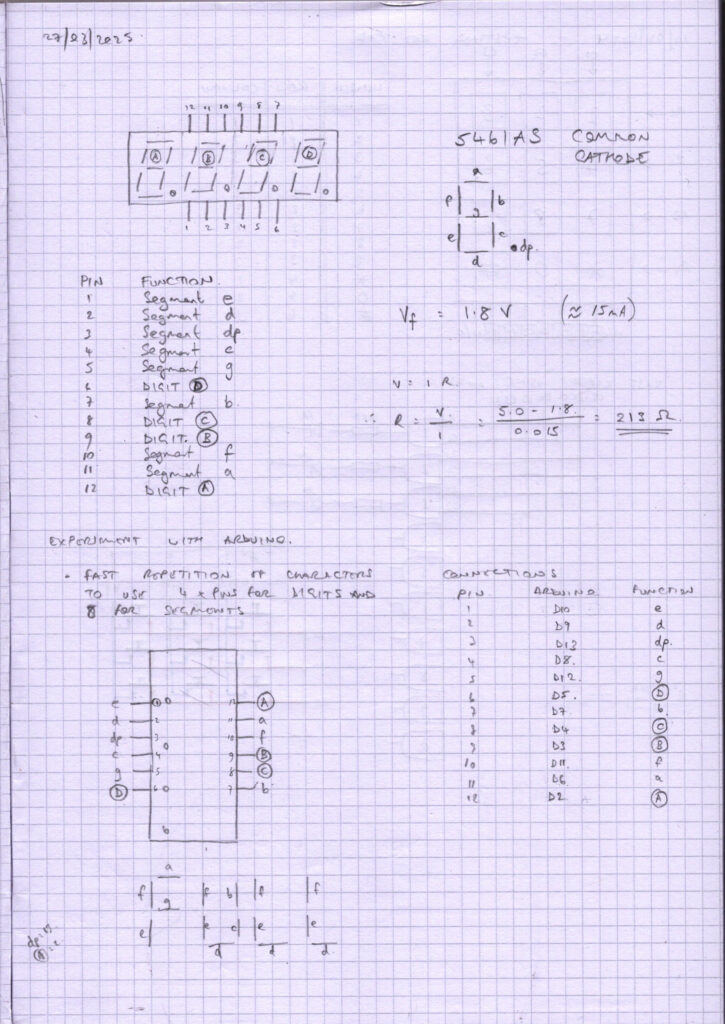 27/03/2025
12 11 10 9 8 7
A B C D
1 2 3 4 5 6
5461AS COMMON
CATHODE
a
f b
g
e c
d dp.
PIN FUNCTION.
1 Segment e
2 Segment d
3 Segment dp
4 Segment c
5 Segment g
6 DIGIT D
7 Segmet b.
8 DIGIT C
9 DIGIT. B
10 Segment f
11 Segment a
12 DIGIT A
Vf = 1.8 V (≈ 15mA)
V = I R.
∴ R = V/I = 5.0 - 1.8/0.015 = 213 Ω
EXPERIMENT WITH ARDUINO.
• FAST REPETITION OF CHARACTERS
TO USE 4 x PINS FOR DIGITS AND
8 FOR SEGMENTS
CONNECTIONS
PIN ARDUINO FUNCTION
1 D10 e
2 D9 d
3 D13 dp.
4 D8. c
5 D12. g
6 D5. D
7 D7 b.
8 D4 C
9 D3 B
10 D11. f
11 D6 a
12 D2 A
e 1 12 A
d 2 11 a
dp 3 10 f
c 4 9 B
g 5 8 C
D 6 7 b
a
f f b f f
g
e e c e e
d d d
dp=13
A=2